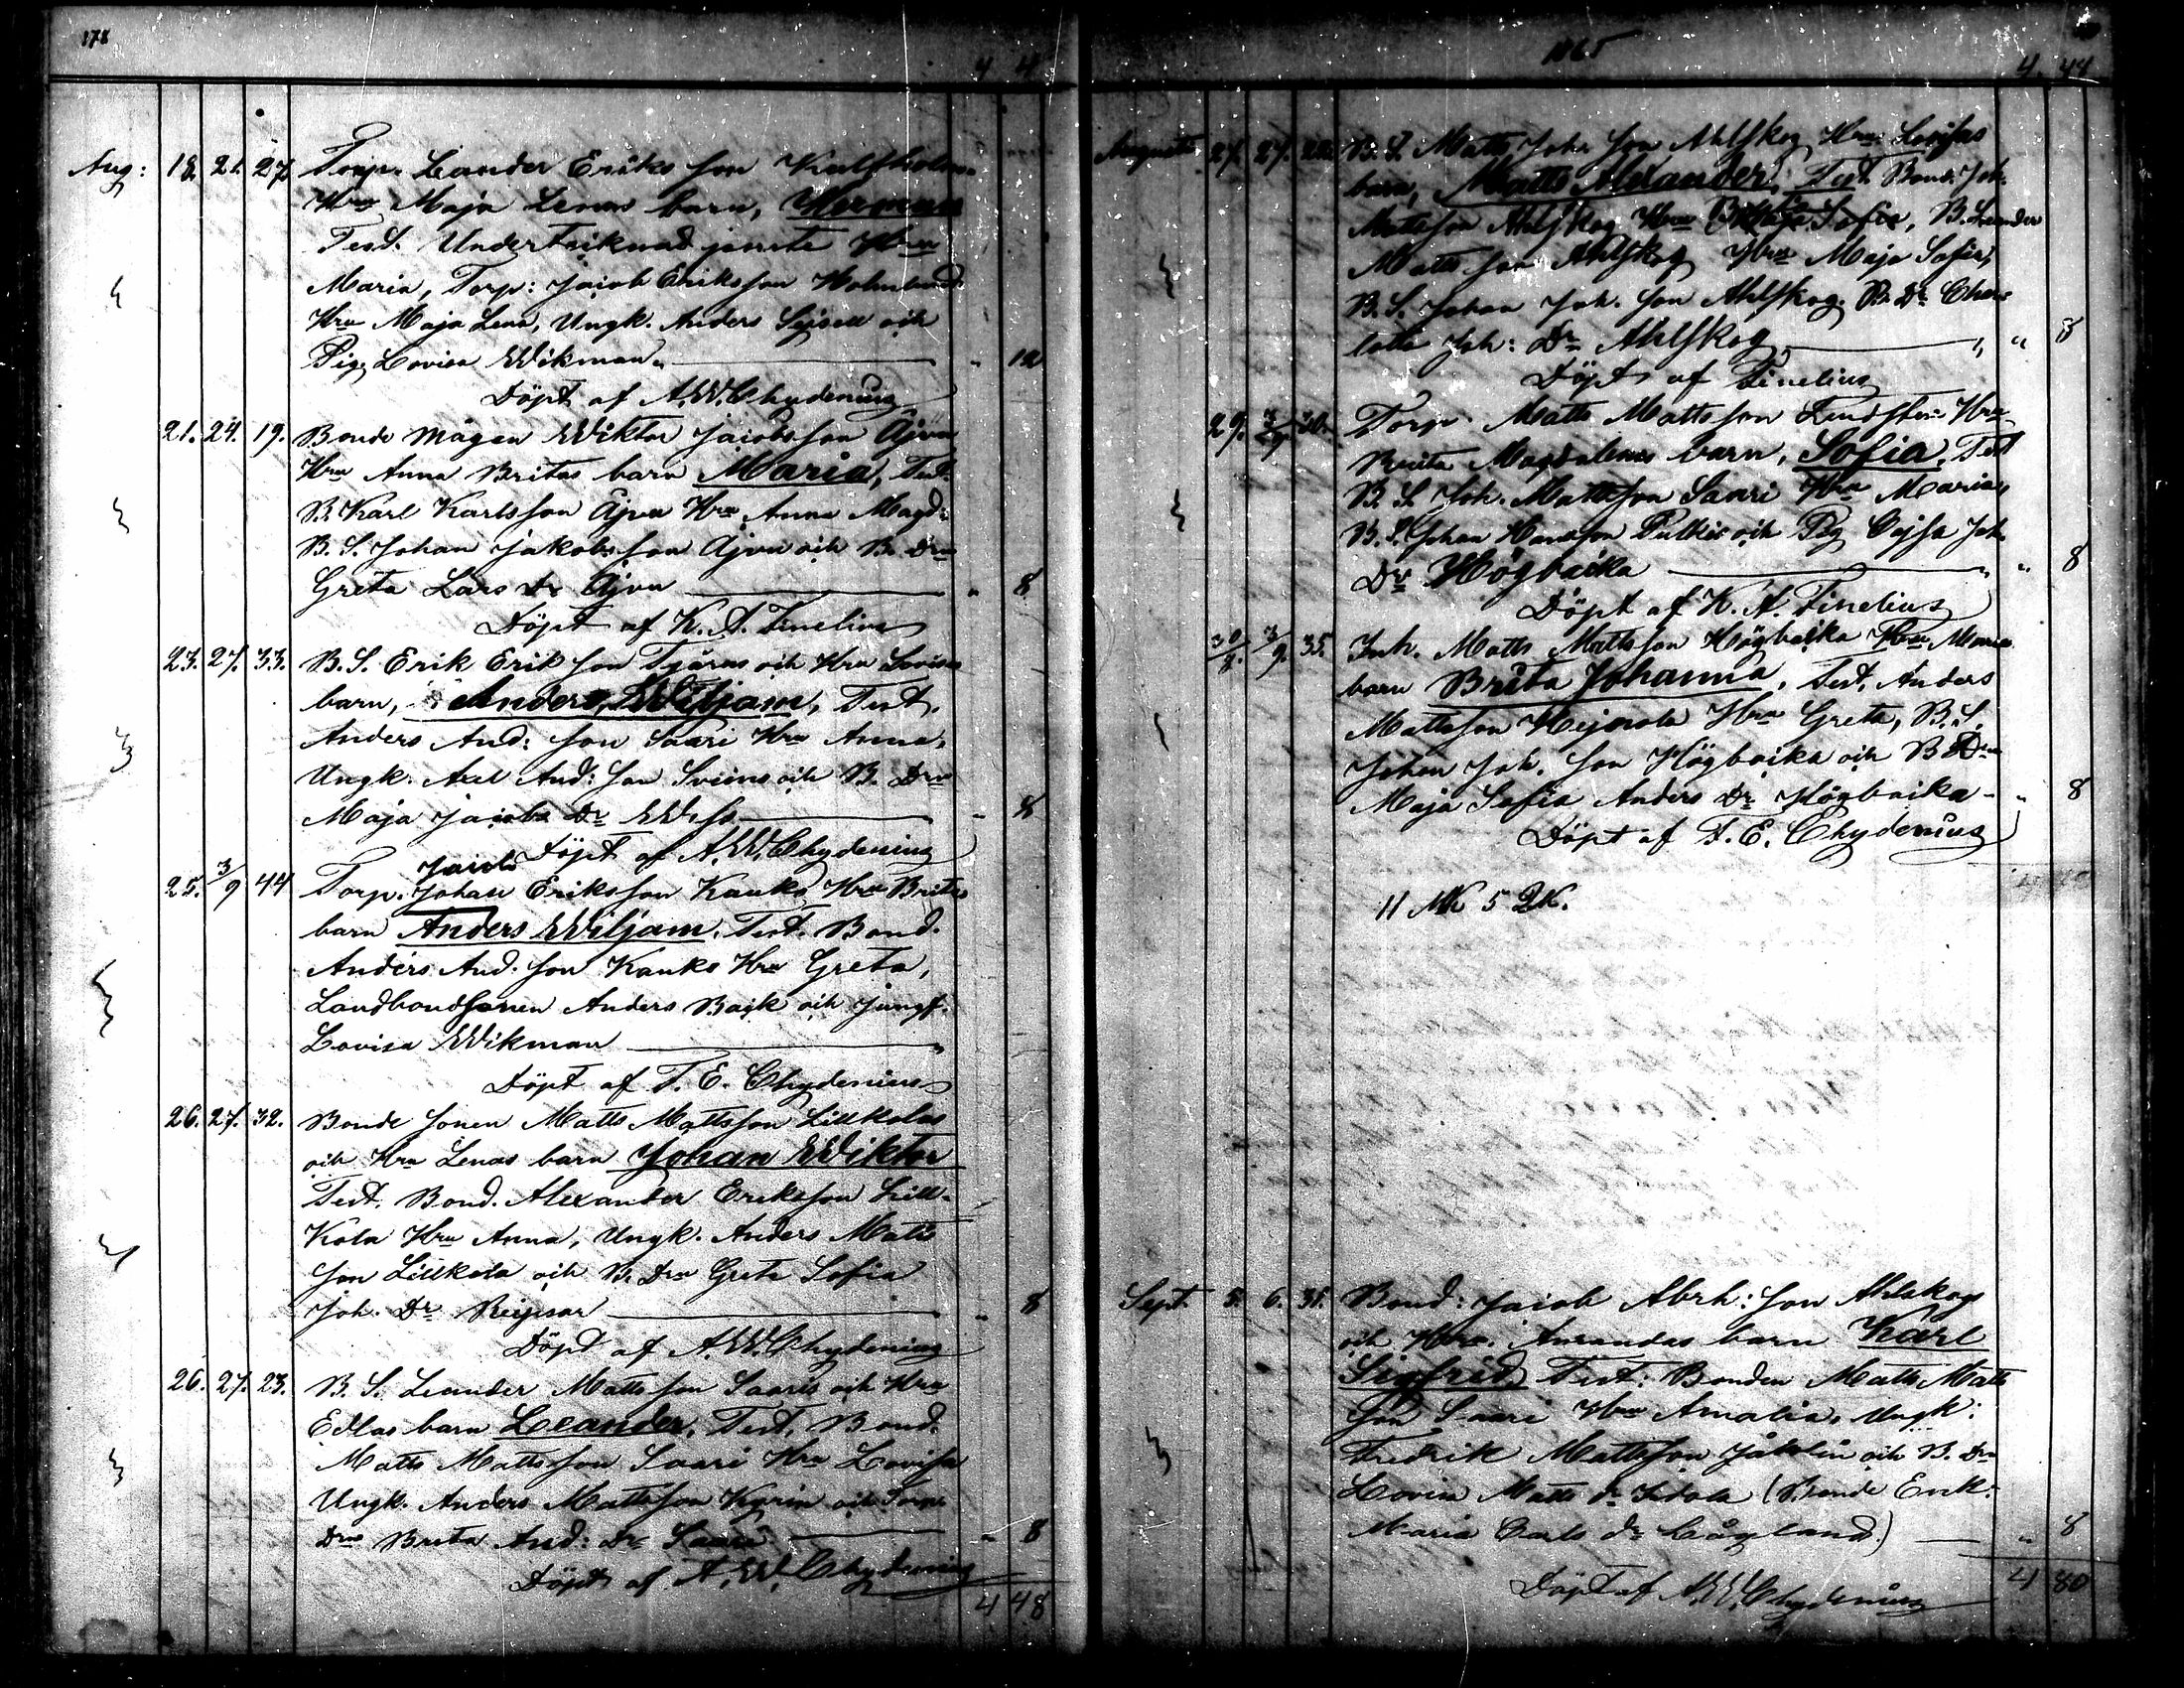 178
4 4
Aug: 18. 21. 27. Torp. Leander Eriks son
Hru Maja Lenas barn, Herman
Test. Undertecknad jemte Hru
Maria, Torp: Jacob Eriksson Holmlund
Hru Maja Lena, Ungk. Anders och
Pig. Lovisa Wikman " 12
Döpt af A. W. Chydenius
21. 24. 19. Bonde mågen Wiktor Jacobsson Ajva
Hru Anna Britas barn Maria, Test.
B. Karl Karlsson Ajva Hru Anna Magd:
B. S. Johan Jakobsson Ajva och B. Drn
Greta Lars Dr Ajva " 8
Döpt af K. A. Finelius
23. 27. 33. B. S. Erik Erik son Tjäras och Hru Lovisas
barn, Anders Wiljam, Test.
Anders And: son Saari Hru Anna,
Ungk. Axel And: son Sveins och B. Drn
Maja Jacobs Dr Wess " 8
Döpt af A. W. Chydenius
Jacob
25. 3/9 44 Torp. Johan Eriksson Kauko Hru Britas
barn Anders Wiljam. Test. Bond.
Anders And. son Kauko Hru Greta,
Landbondsonen Anders Backk och Jungf.
Lovisa Wikman
Döpt af T. E. Chydenius
26. 27. 32. Bonde sonen Matts Mattsson Lillkolas
och Hru Lenas barn Johan Wiktor
Test. Bond. Alexander Eriksson Lill-
Kola Hru Anna, Ungk. Anders Matts
son Lillkola och B. Drn Greta Sofia
Joh. Dr Reipsar " 8
Döpt af A. W. Chydenius
26. 27. 23. B. S. Leander Matts son Saaris och Hru
Edlas barn Leander, Test. Bond.
Matts Mattsson Saari Hru Lovisa
Ungk. Anders Mattsson Kyrin och Torp.
Drn Brita And: Dr Saari " 8
Döpt af A. W. Chydenius
4 48
1865
4. 44
Augusti 27. 27. B. S. Matts Joh. son Ahlskog Hru Lovisas
barn, Matts Alexander, Test. Bond. Joh.
Mattsson Ahlskog Hru Sofia, B. Leander
Matts son Ahlskog Hru Maja Sofia,
B. S. Johan Joh. son Ahlskog. B. Dr Char-
lotta Joh: Dr Ahlskog " 8
Döpt af Finelius
29. 3/9 30. Torp. Matts Mattsson Hru
Brita Magdalenas barn, Sofia, Test
B. S. Joh. Mattsson Saari Hru Maria,
B. S. Johan Hansson Pulkis och Pig Cajsa Joh.
Dr Högbacka " 8
Döpt af K. A. Finelius
30/8. 3/9. 35. Inh. Matts Mattsson Högbacka Hru Marias
barn Brita Johanna, Test. Anders
Mattsson Hejarola Hru Greta, B. S.
Johan Joh. son Högbacka och B Drn
Maja Sofia Anders Dr Högbacka " 8
Döpt af T. E. Chydenius
11 MK 5 QK.
Sept. 5. 6. 31. Bond: Jacob Abrh: son Ahlskogs
och Hru. Amandas barn Karl
Sigfrid, Test: Bonden Matts Matts
son Saari Hru Amalia, Ungk:
Fredrik Mattsson och B. Drn
Lovisa Matts dr Sidola
Maria Carls dr Cågland.) " 8
Döpt af A. W. Chydenius
4 80